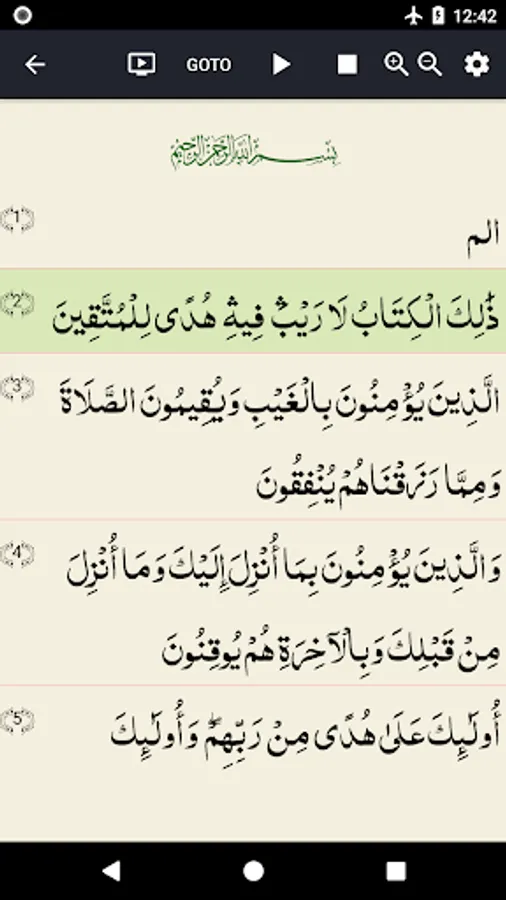 12:42
GOTO
بسم الله الرحمن الرحيم
1
الم
2
ذَٰلِكَ الْكِتَابُ لَا رَيْبَ ۛ فِيهِ ۛ هُدًى لِلْمُتَّقِينَ
3
الَّذِينَ يُؤْمِنُونَ بِالْغَيْبِ وَيُقِيمُونَ الصَّلَاةَ
وَمِمَّا رَزَقْنَاهُمْ يُنْفِقُونَ
4
وَالَّذِينَ يُؤْمِنُونَ بِمَا أُنْزِلَ إِلَيْكَ وَمَا أُنْزِلَ
مِنْ قَبْلِكَ وَبِالْآخِرَةِ هُمْ يُوقِنُونَ
5
أُولَٰئِكَ عَلَىٰ هُدًى مِنْ رَبِّهِمْ ۖ وَأُولَٰئِكَ